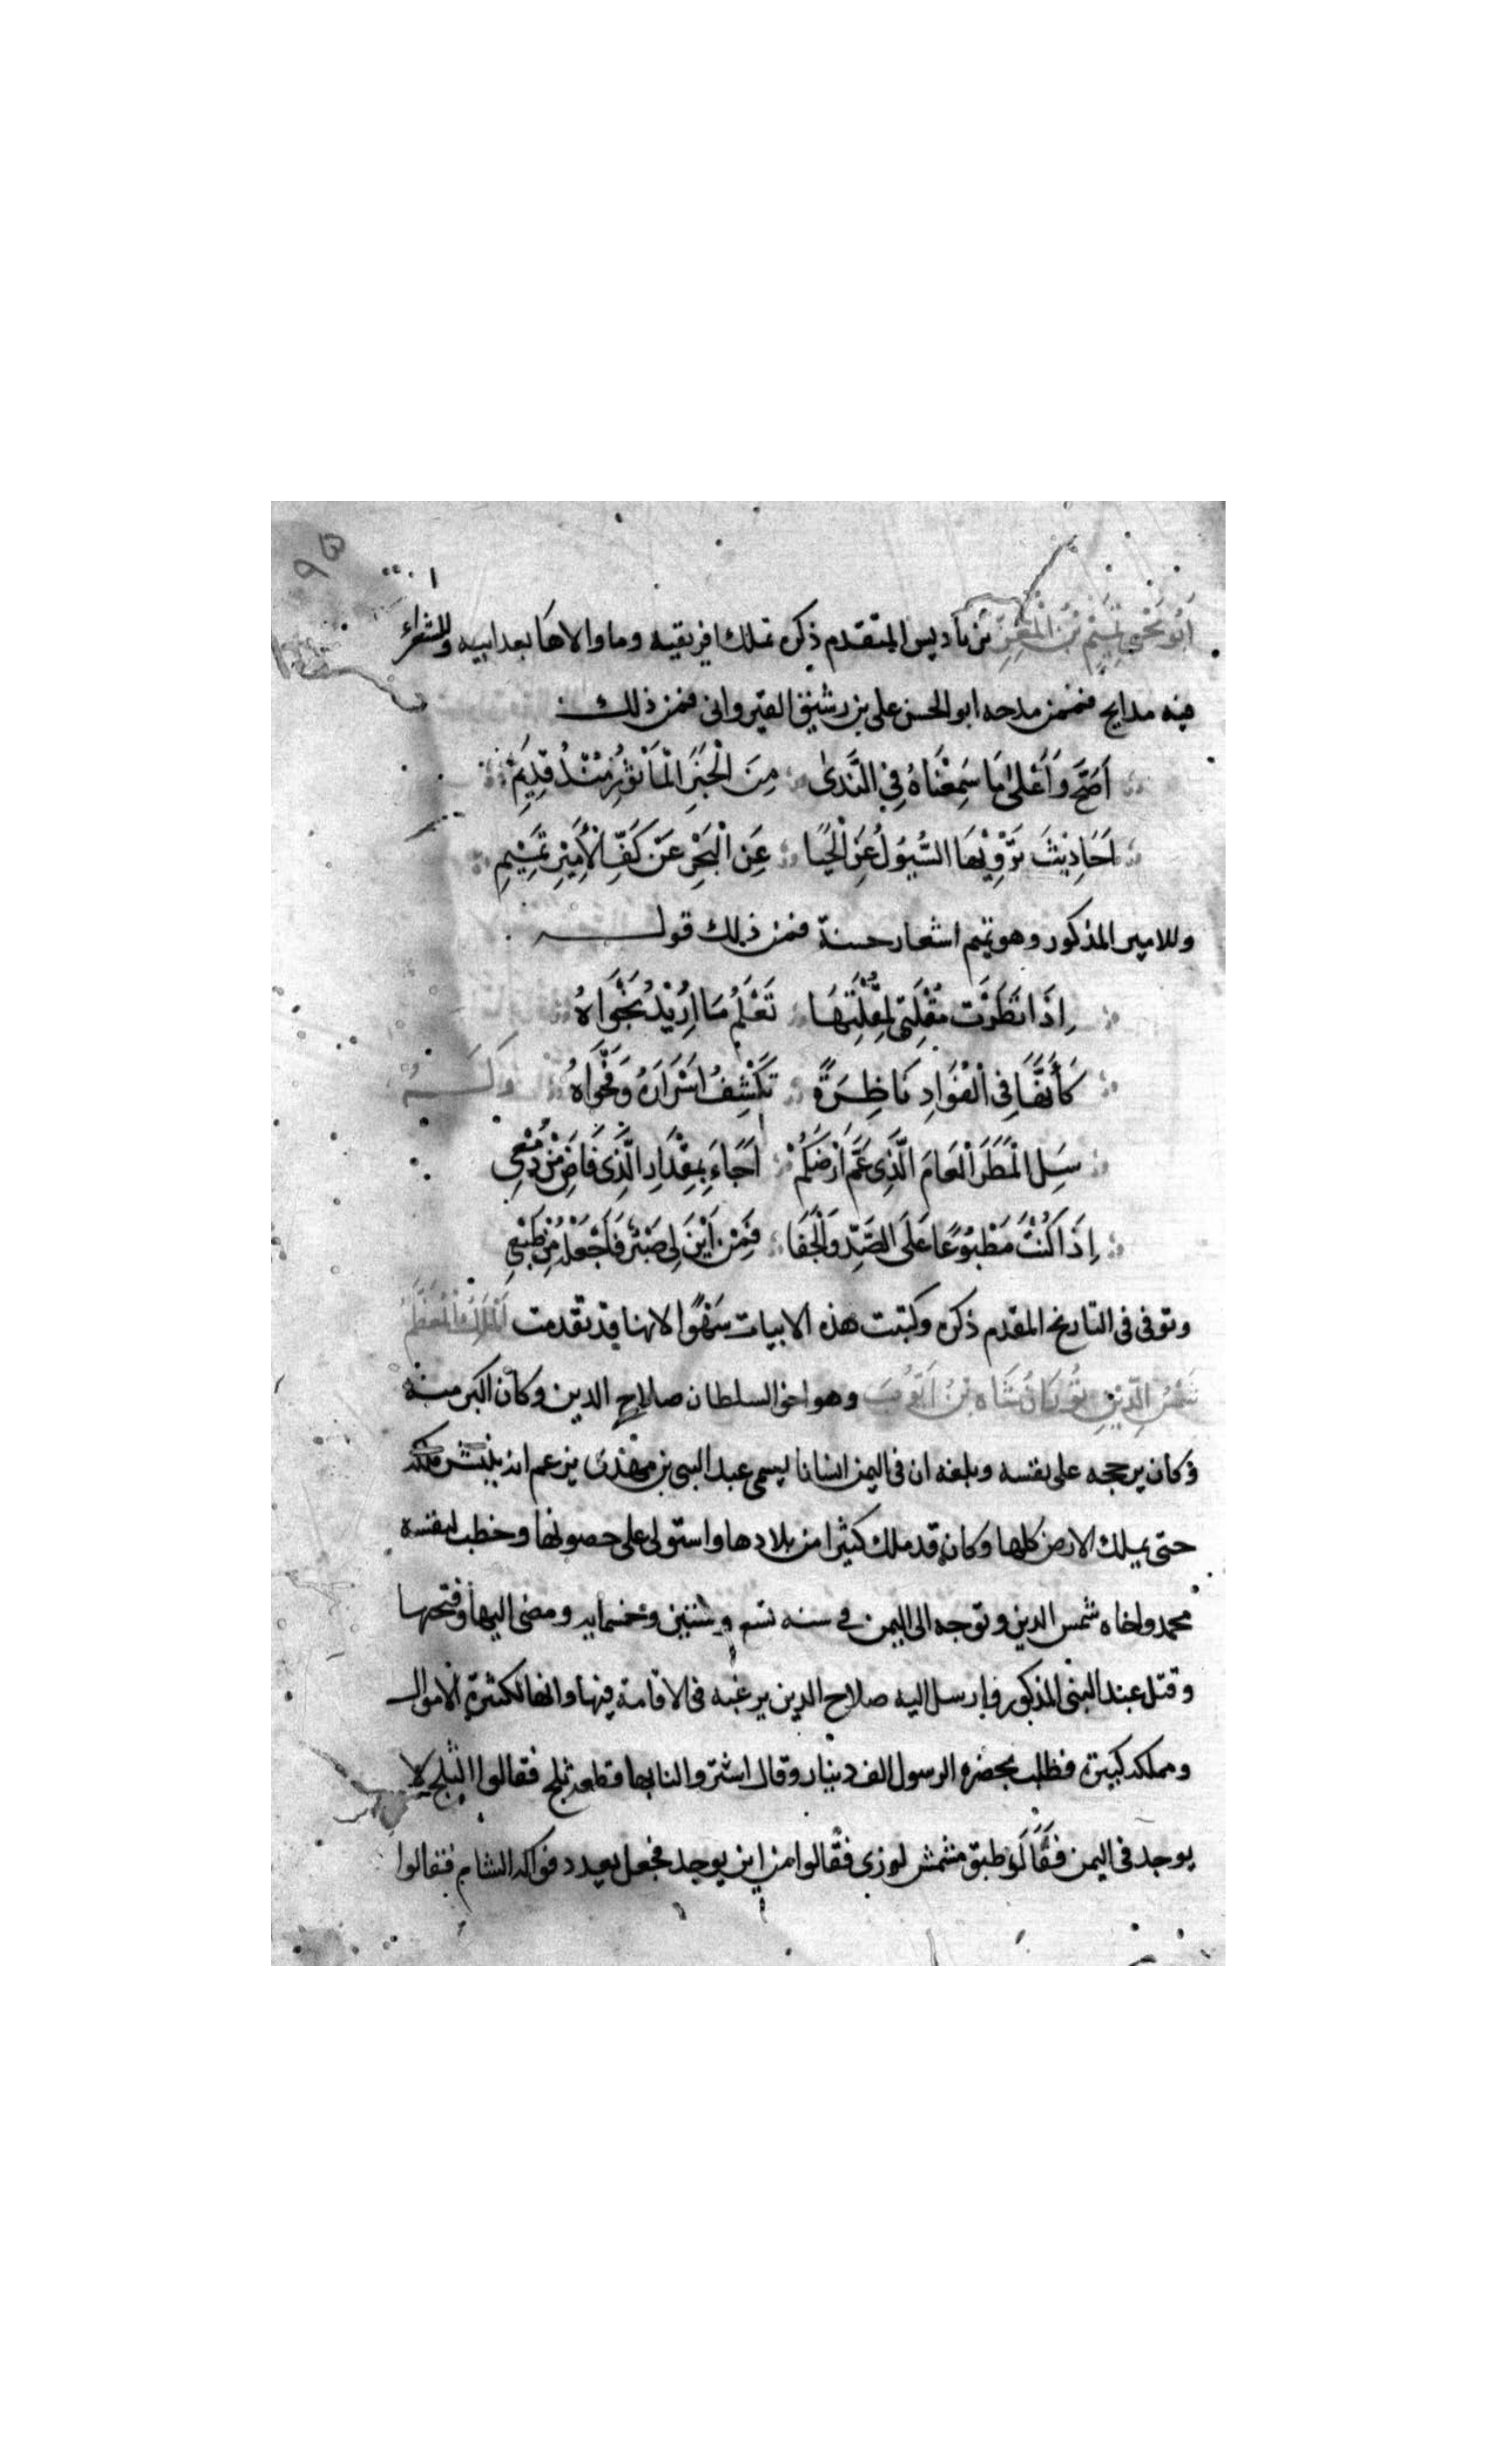 ٩٣
أَبُو يَحْيَى تَمِيْم بْنُ الْمُعِزِّ بْن بَاديس المتقدم ذكره تملك افريقيه وما والاها بعد ابيه وللشعراء
فيه مدايح فممن مدحه ابو الحسن على بن رشيق القيروانى فمن ذلك
أَصَحُّ وَأَعْلَىٰ مَا سَمِعْنَاهُ فِي النَّدَىٰ مِنَ الْخَبَرِ الْمَأْثُورِ مُنْذُ قَدِيْمِ
أَحَادِيْثَ تَرْوِيْهَا السُّيُوْلُ عَنِ الْحَيَا عَنِ الْبَحْرِ عَنْ كَفِّ الْأَمِيْرِ تَمِيْمِ
وللامير المذكور وهو تميم اشعار حسنة فمن ذلك قوله
اِذَا نَظَرَتْ مُقْلَتِى لِمُقْلَتِهَا تَعْلَمُ مَا اُرِيْدُ نَجْوَاهُ
كَأَنَّهَا فِى الْفُوَادِ نَاظِرَةً تَكْشِفُ اَسْرَارَهُ وَفَحْوَاهُ وَلَهُ
سَلِ الْمَطَرَ الْعَامَ الَّذِى عَمَّ اَرْضَكُمْ اَجَاءَ بِمِقْدَارِ الَّذِى فَاضَ مِنْ دَمْعِى
اِذَا كُنْتُ مَطْبُوْعًا عَلَى الصَّدِّ وَالْجَفَا فَمِنْ اَيْنَ لِى صَبْرٌ فَاَجْعَلُهُ مِنْ طَبْعِى
وتوفى فى التاريخ المقدم ذكره وكتبت هذه الابيات سَهْوًا لانها قد تقدمت اَلْمَلِكُ الْمُعَظَّمُ
شَمْسُ الدِّيْنِ تُوْرَانْ شَاه بْنُ اَيُّوْبَ وهو اخى السلطان صلاح الدين وكان اكبر منه
فكان يرجحه على نفسه وبلغه ان فى اليمن انسانا يسمى عبد النبى بن مهْدى يزعم انه ينتشر ملكه
حتى يملك الارض كلها وكان قد ملك كثيرا من بلادها واستولى على حصونها وخطب لنفسه
اخاه شمس الدين وتوجه الى اليمن فى سنه تسع وستين وخمسمايه ومضى اليها وفتحها
وقتل عبد النبى المذكور فارسل اليه صلاح الدين يرغبه فى الاقامة فيها وانها لكثيرة الاموال
ومملكه كبيرة فطلب بحضره الرسول الف دينار وقال اشتروا لنا بها قطعه ثلج فقالوا الثلج لا
يوجد فى اليمن فقَال طبق مشمش لوزى فقالوا من اين يوجد فجعل يعدد فواكه الشام فقالوا